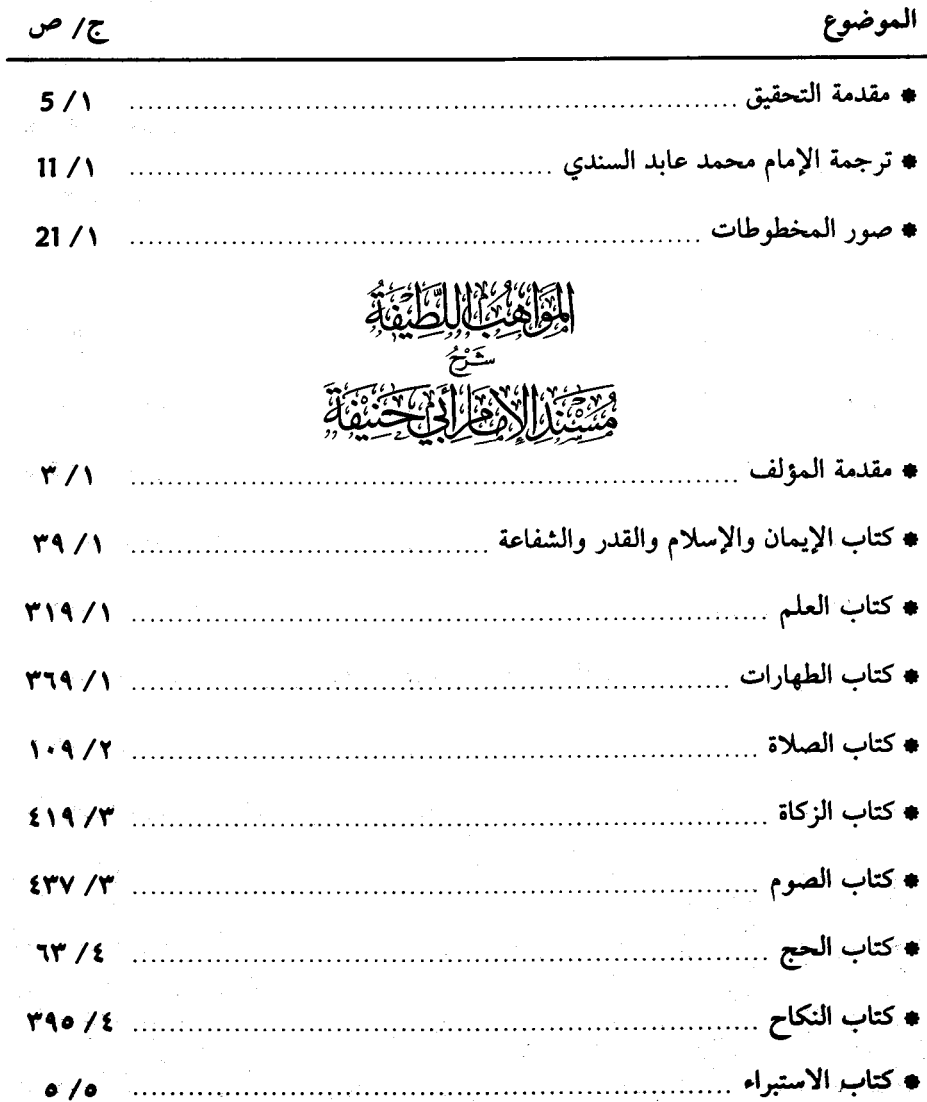 الموضوع ج/ ص
* مقدمة التحقيق ..... ١/ 5
* ترجمة الإمام محمد عابد السندي ..... ١/ 11
* صور المخطوطات ..... ١/ 21
المَوَاهِبُ اللَّطِيْفَةُ
شَرْحُ
مُسْنَدِ الإِمَامِ أَبِي حَنِيْفَةَ
* مقدمة المؤلف ..... ١/ ٣
* كتاب الإيمان والإسلام والقدر والشفاعة ..... ١/ ٣٩
* كتاب العلم ..... ١/ ٣١٩
* كتاب الطهارات ..... ١/ ٣٦٩
* كتاب الصلاة ..... ٢/ ١٠٩
* كتاب الزكاة ..... ٣/ ٤١٩
* كتاب الصوم ..... ٣/ ٤٣٧
* كتاب الحج ..... ٤/ ٦٣
* كتاب النكاح ..... ٤/ ٣٩٥
* كتاب الاستبراء ..... ٥/ ٥